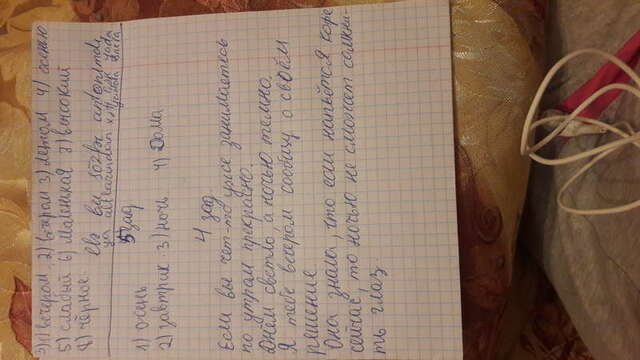 3) 1) вечером 2) вечером 3) летом 4) осенью
5) слабый 6) маленькая 7) высокий
8) чёрное.
bu sözləri antonimdi
ya
5 зад
1) очень
2) завтрак 3) ночь 4) Дома
4 зад.
Если вы чем-то уже занимаетесь
по утрам прекрасно.
Днём светло, а ночью темно.
Я тебе вечером сообщу о своём
решение.
Она знала, что если напьётся кофе
сейчас, то ночью не сможет сомкну-
ть глаз.